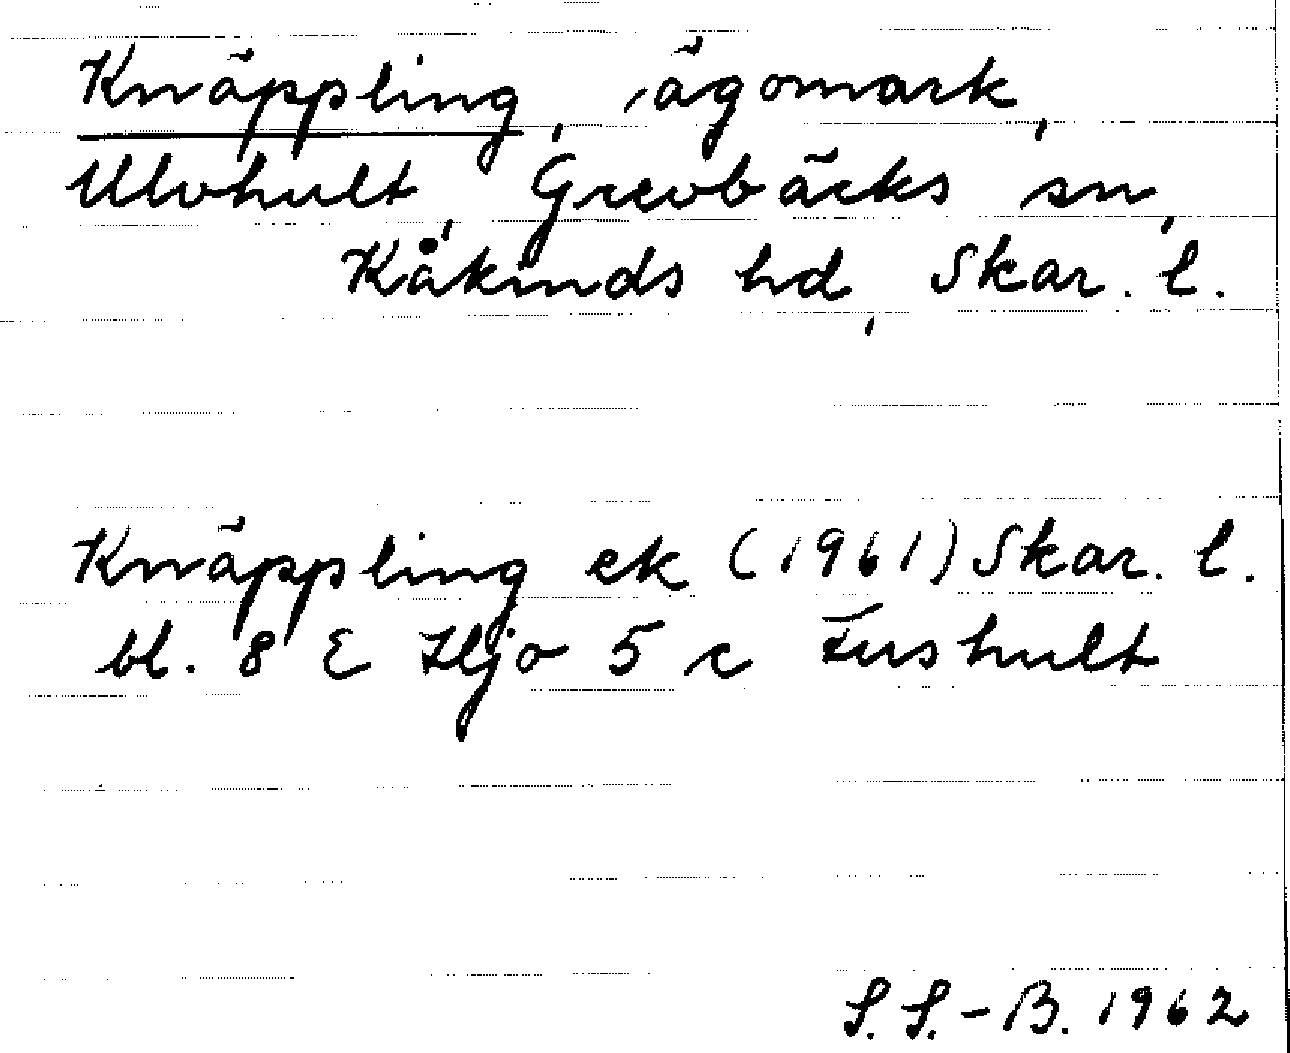 Knäppling, ägomark,
Ulvhult, Grevbäcks sn,
Kåkinds hd, Skar. l.
Knäppling ek (1961) Skar. l.
bl. 8 E Hjo 5 c Fushult
S. S.-B. 1962